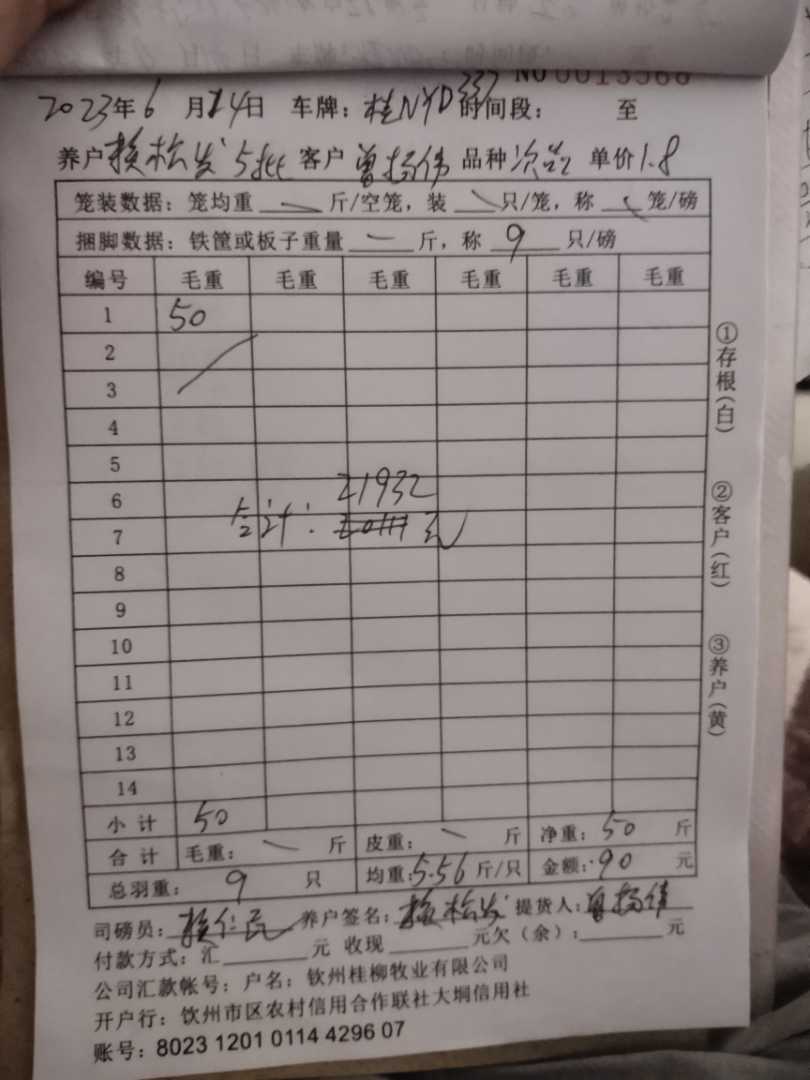 No 0013568
2023年6月14日 车牌：桂NYD337 时间段： 至
养户 赖松发 客户 曾扬伟 品种 次品 单价 1.8
笼装数据：笼均重 斤/空笼，装 只/笼，称 笼/磅
捆脚数据：铁筐或板子重量 一 斤，称 9 只/磅
编号 毛重 毛重 毛重 毛重 毛重 毛重
1 50
2
3
4
5
6 21932
7 合计： 元
8
9
10
11
12
13
14
小计 50
合计 毛重： 斤 皮重： 斤 净重：50 斤
总羽重： 9 只 均重：5.56 斤/只 金额：90 元
司磅员：赖仁民 养户签名：赖松发 提货人：曾扬伟
付款方式：汇 元 收现 元欠（余）： 元
公司汇款帐号：户名：钦州桂柳牧业有限公司
开户行：钦州市区农村信用合作联社大垌信用社
账号：8023 1201 0114 4296 07
①存根（白）
②客户（红）
③养户（黄）